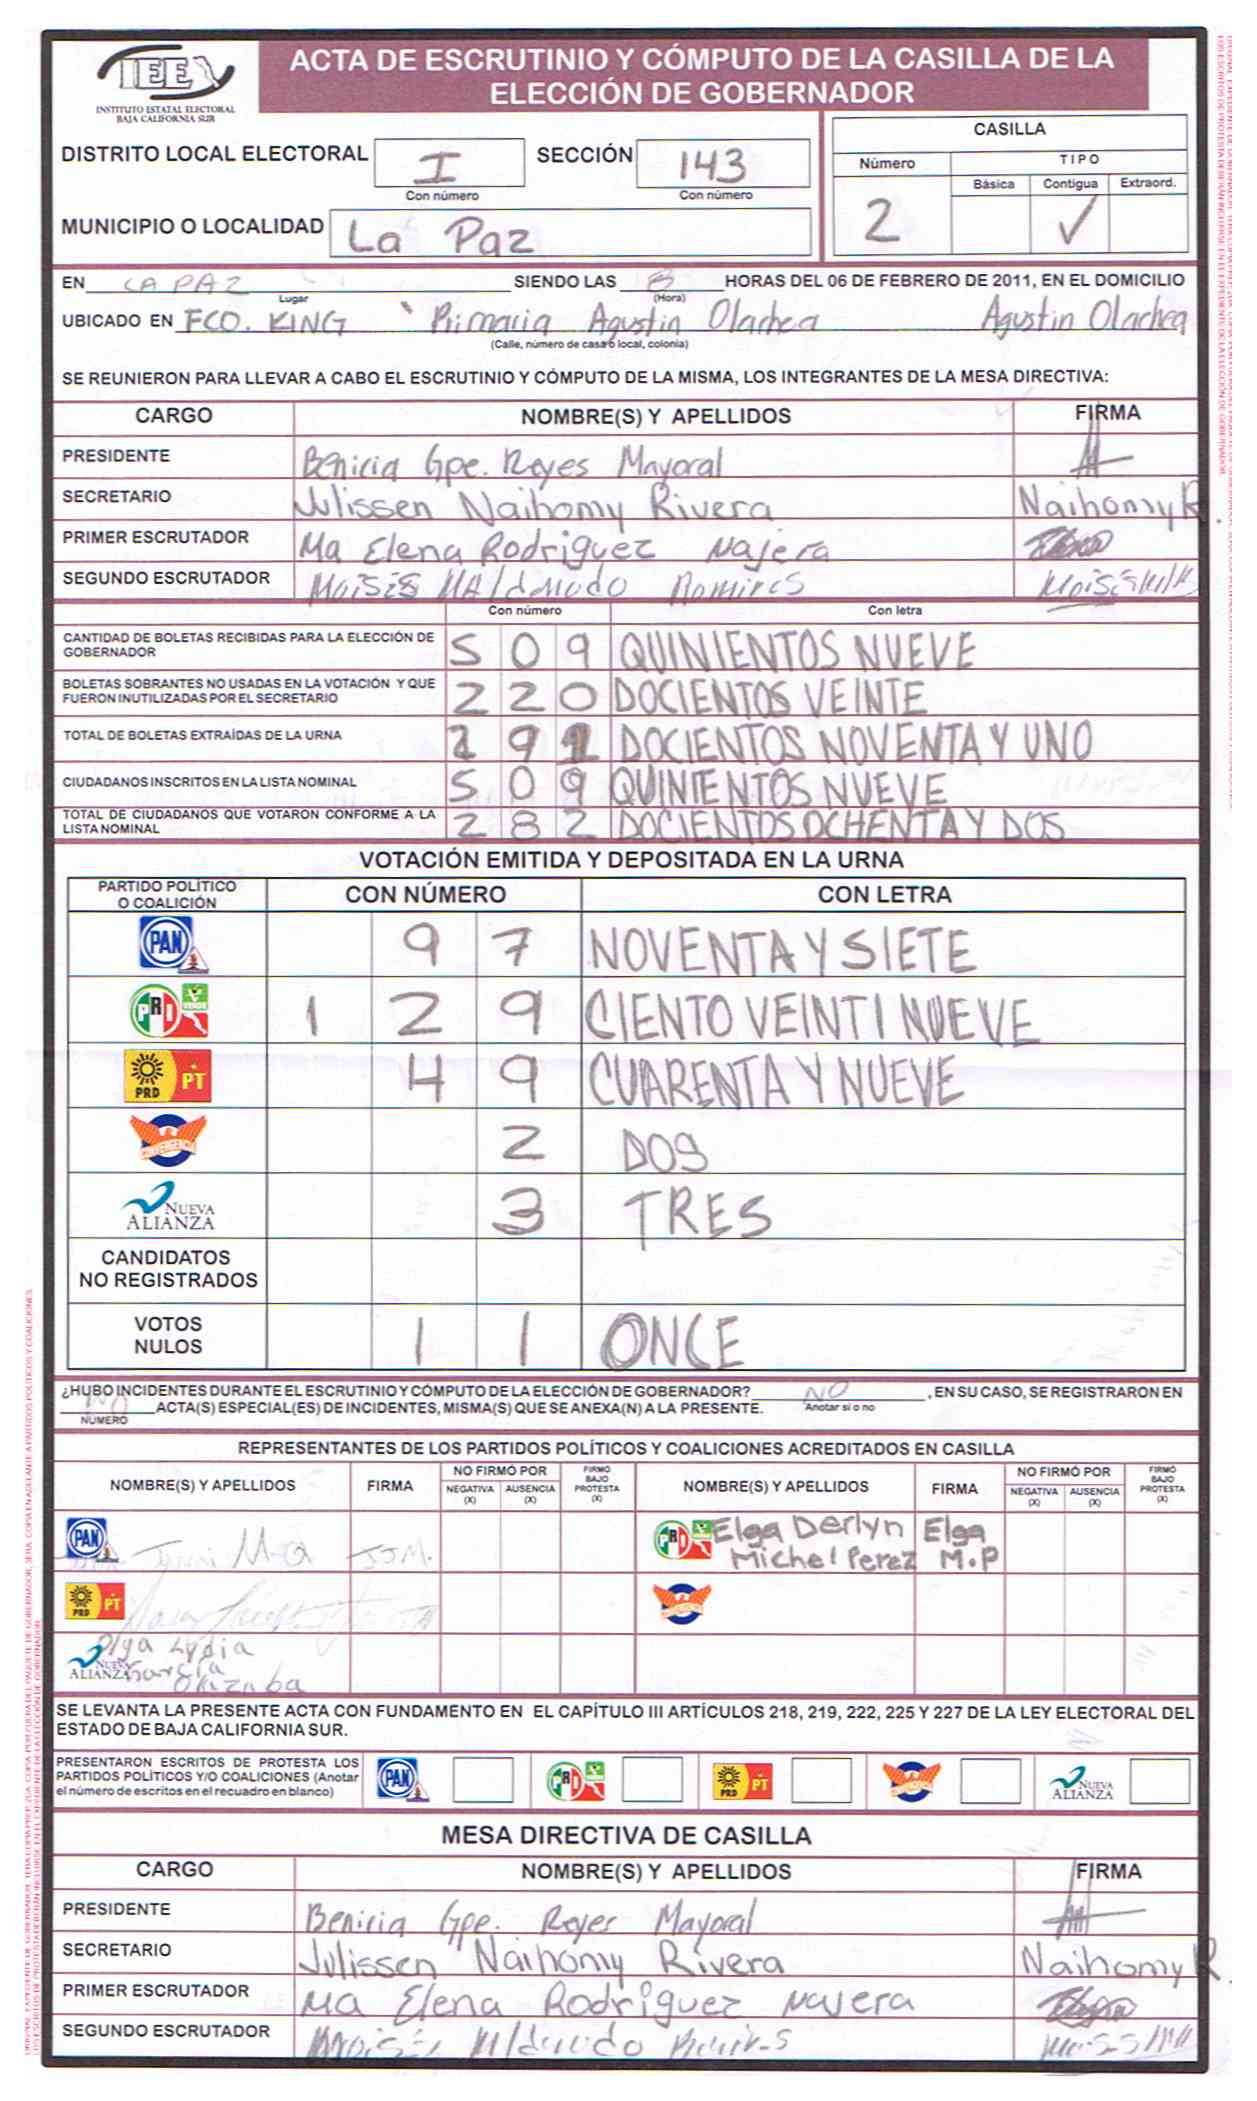 IEE
INSTITUTO ESTATAL ELECTORAL
BAJA CALIFORNIA SUR
ACTA DE ESCRUTINIO Y CÓMPUTO DE LA CASILLA DE LA
ELECCIÓN DE GOBERNADOR
DISTRITO LOCAL ELECTORAL I SECCIÓN 143
Con número Con número
MUNICIPIO O LOCALIDAD La Paz
CASILLA
Número TIPO
Básica Contigua Extraord.
2 ✓
EN LA PAZ SIENDO LAS HORAS DEL 06 DE FEBRERO DE 2011, EN EL DOMICILIO
Lugar (Hora)
UBICADO EN FCO. KING Primaria Agustin Olachea Agustin Olachea
(Calle, número de casa o local, colonia)
SE REUNIERON PARA LLEVAR A CABO EL ESCRUTINIO Y CÓMPUTO DE LA MISMA, LOS INTEGRANTES DE LA MESA DIRECTIVA:
CARGO NOMBRE(S) Y APELLIDOS FIRMA
PRESIDENTE Benicia Gpe. Reyes Mayoral
SECRETARIO Julissen Naihomy Rivera Naihomy R.
PRIMER ESCRUTADOR Ma Elena Rodriguez Najera
SEGUNDO ESCRUTADOR Moisés Maldonado Ramires
Con número Con letra
CANTIDAD DE BOLETAS RECIBIDAS PARA LA ELECCIÓN DE
GOBERNADOR 509 QUINIENTOS NUEVE
BOLETAS SOBRANTES NO USADAS EN LA VOTACIÓN Y QUE
FUERON INUTILIZADAS POR EL SECRETARIO 220 DOCIENTOS VEINTE
TOTAL DE BOLETAS EXTRAÍDAS DE LA URNA 291 DOCIENTOS NOVENTA Y UNO
CIUDADANOS INSCRITOS EN LA LISTA NOMINAL 509 QUINIENTOS NUEVE
TOTAL DE CIUDADANOS QUE VOTARON CONFORME A LA
LISTA NOMINAL 282 DOCIENTOS OCHENTA Y DOS
VOTACIÓN EMITIDA Y DEPOSITADA EN LA URNA
PARTIDO POLÍTICO
O COALICIÓN CON NÚMERO CON LETRA
PAN 97 NOVENTA Y SIETE
PRI VERDE 129 CIENTO VEINTINUEVE
PRD PT 49 CUARENTA Y NUEVE
CONVERGENCIA 2 DOS
NUEVA ALIANZA 3 TRES
CANDIDATOS
NO REGISTRADOS
VOTOS
NULOS 11 ONCE
¿HUBO INCIDENTES DURANTE EL ESCRUTINIO Y CÓMPUTO DE LA ELECCIÓN DE GOBERNADOR? NO , EN SU CASO, SE REGISTRARON EN
NO ACTA(S) ESPECIAL(ES) DE INCIDENTES, MISMA(S) QUE SE ANEXA(N) A LA PRESENTE. Anotar si o no
NÚMERO
REPRESENTANTES DE LOS PARTIDOS POLÍTICOS Y COALICIONES ACREDITADOS EN CASILLA
NOMBRE(S) Y APELLIDOS FIRMA NO FIRMÓ POR NEGATIVA (X) AUSENCIA (X) FIRMÓ BAJO PROTESTA (X) NOMBRE(S) Y APELLIDOS FIRMA NO FIRMÓ POR NEGATIVA (X) AUSENCIA (X) FIRMÓ BAJO PROTESTA (X)
PAN JJM. PRI Elga Derlyn Elga
Michel Perez M.P
PRD PT
Olga Lydia
NUEVA ALIANZA García
SE LEVANTA LA PRESENTE ACTA CON FUNDAMENTO EN EL CAPÍTULO III ARTÍCULOS 218, 219, 222, 225 Y 227 DE LA LEY ELECTORAL DEL
ESTADO DE BAJA CALIFORNIA SUR.
PRESENTARON ESCRITOS DE PROTESTA LOS
PARTIDOS POLÍTICOS Y/O COALICIONES (Anotar
el número de escritos en el recuadro en blanco) PAN PRI PRD PT NUEVA ALIANZA
MESA DIRECTIVA DE CASILLA
CARGO NOMBRE(S) Y APELLIDOS FIRMA
PRESIDENTE Benicia Gpe. Reyes Mayoral
SECRETARIO Julissen Naihomy Rivera Naihomy R.
PRIMER ESCRUTADOR Ma Elena Rodriguez Najera
SEGUNDO ESCRUTADOR Moisés Maldonado Ramires